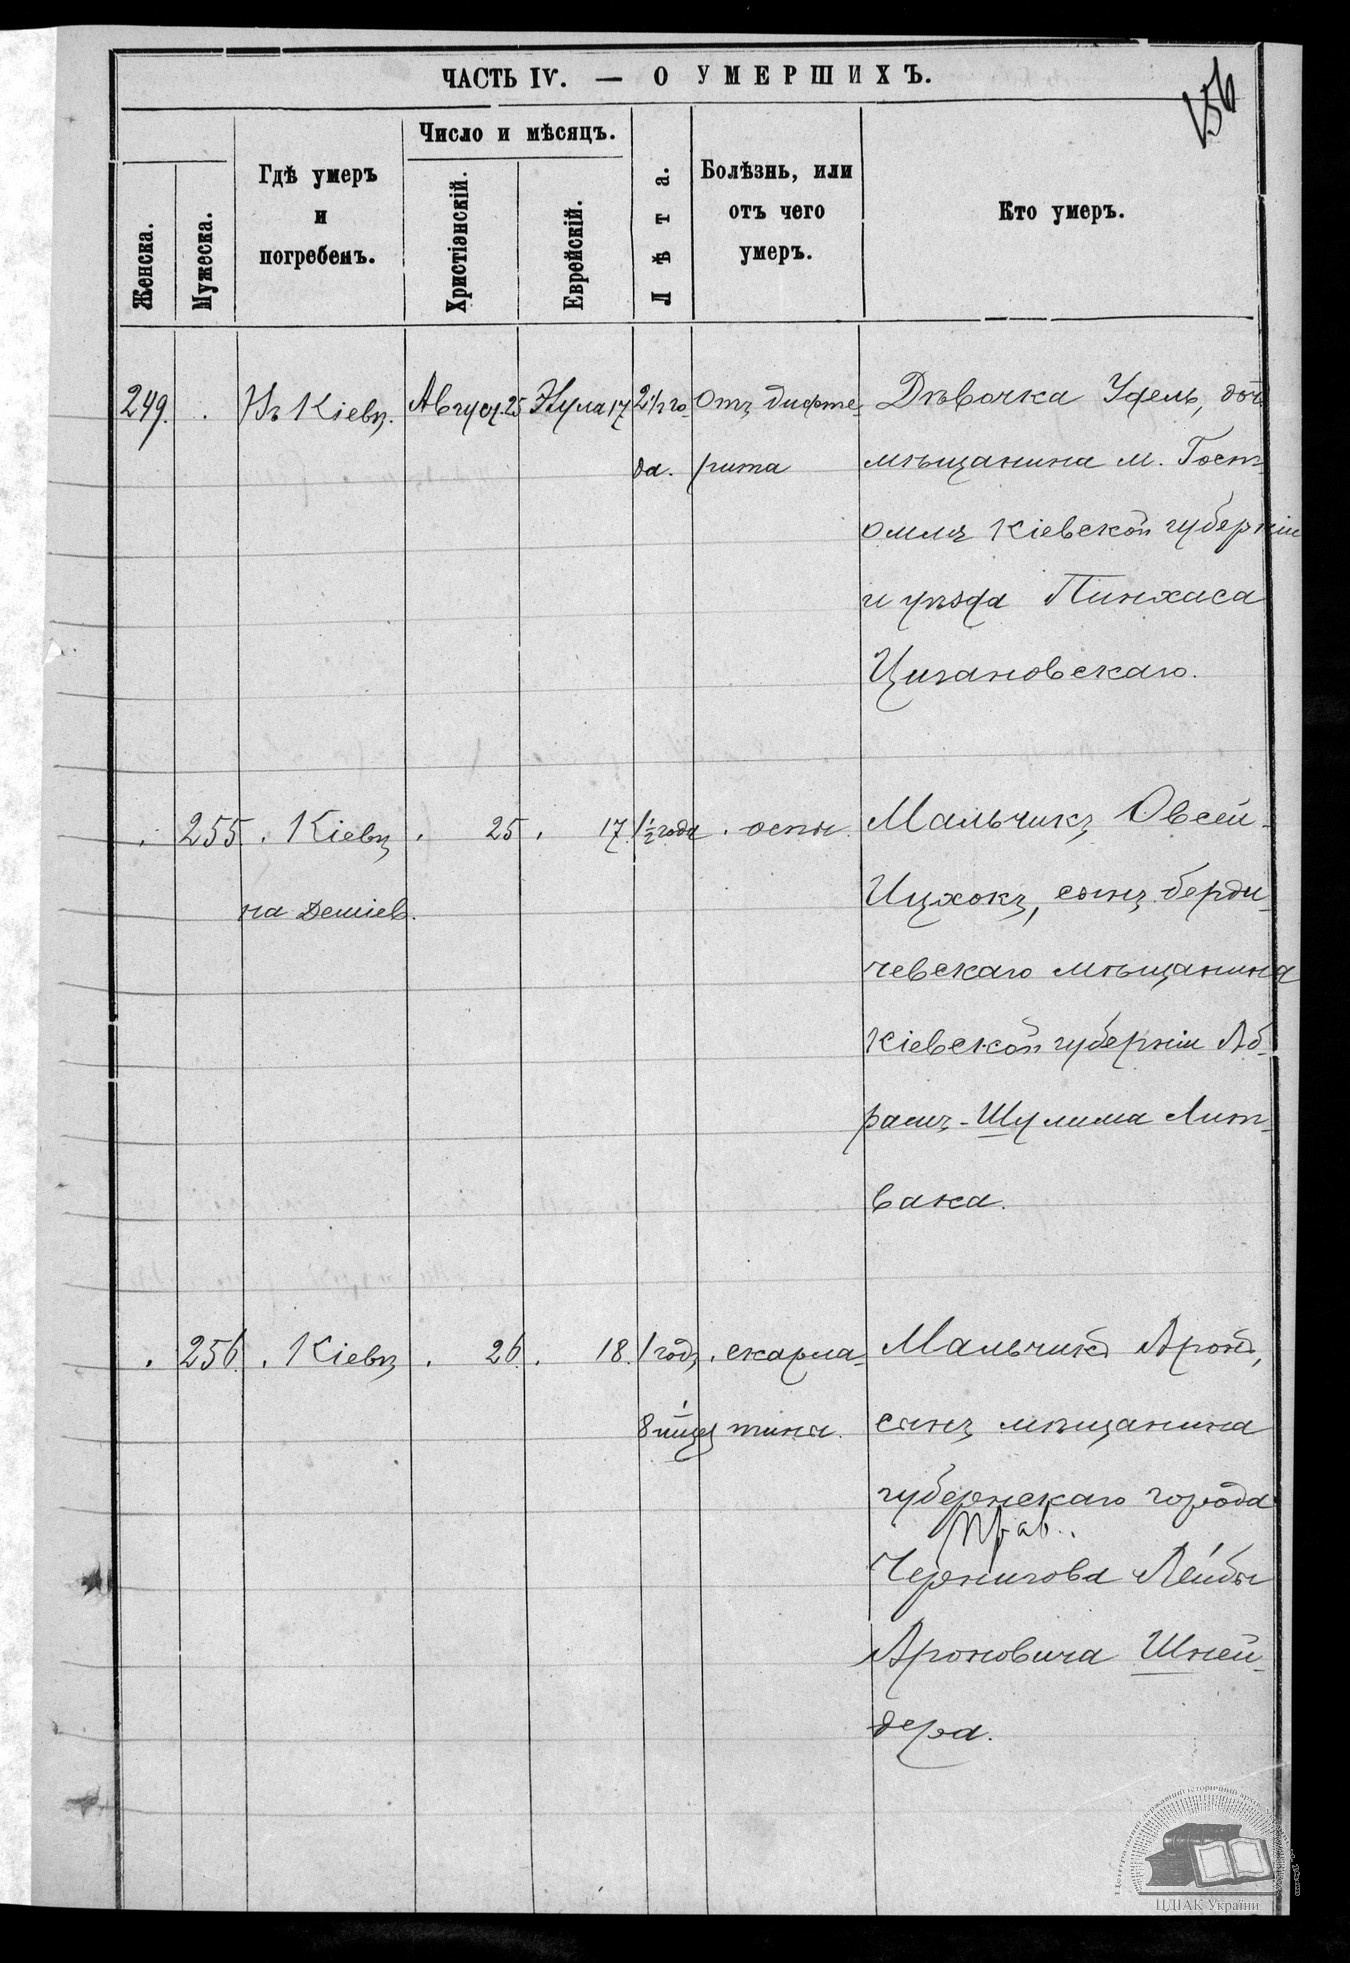 ЧАСТЬ IV. — О УМЕРШИХЪ.
156
Женска.
Мужеска.
Гдѣ умеръ
и
погребенъ.
Число и мѣсяцъ.
Христіанскій.
Еврейскій.
Лѣта.
Болѣзнь, или
отъ чего
умеръ.
Кто умеръ.
249. . Въ Кіевѣ. Август. 25 17 2½ го- Отъ дифте- Дѣвочка Удель, доч
да. рита мѣщанина м. Гост-
омля Кіевской губерніи
и уѣзда Пинхаса
Цигановскаго.
. 255 . Кіевѣ . 25 . 17 1½ года . оспы. Мальчикъ Овсей-
на Деміев. Ицхокъ, сынъ берди-
чевскаго мѣщанина
Кіевской губерніи Аб-
рамъ-Шулима Лит-
вака.
. 256 . Кіевѣ . 26 . 18 1 годъ . скарла- Мальчикъ Аронъ,
8 тины. сынъ мѣщанина
губернскаго города
Прав..
Чернигова Лейбы
Ароновича Шней-
дера.
ЦДІАК України